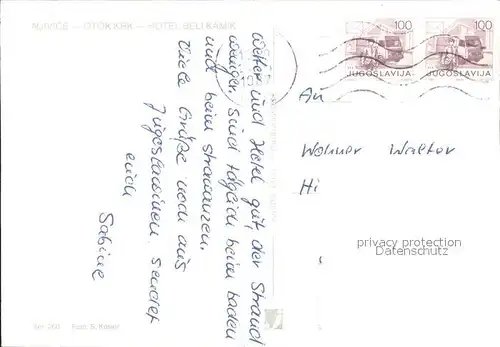 NJIVICE — OTOK KRK — HOTEL BELI KAMIK
Wetter und Hotel gut, der Strand
weniger, sind täglich beim baden
und beim strawanzen.
Viele Grüße noch aus
Jugoslawien sendet
euch
Sabine
100
JUGOSLAVIJA
100
JUGOSLAVIJA
An
Wohner Walter
Hi
privacy protection
Datenschutz